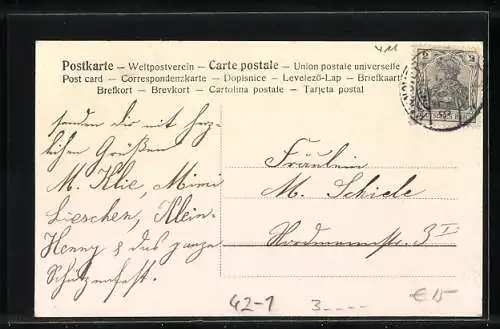 Postkarte – Weltpostverein – Carte postale – Union postale universelle
Post card – Correspondenzkarte – Dopisnice – Levelező-Lap – Briefkaart
Brefkort – Brevkort – Cartolina postale – Tarjeta postal
senden dir mit herz-
lichen Grüßen
M. Klie, Mimi
Lieschen, Klein-
Henny & das ganze
Schützenfest.
Fräulein
M. Schiele
Nordmannstr. 3 I
42-1
3----
€ 15